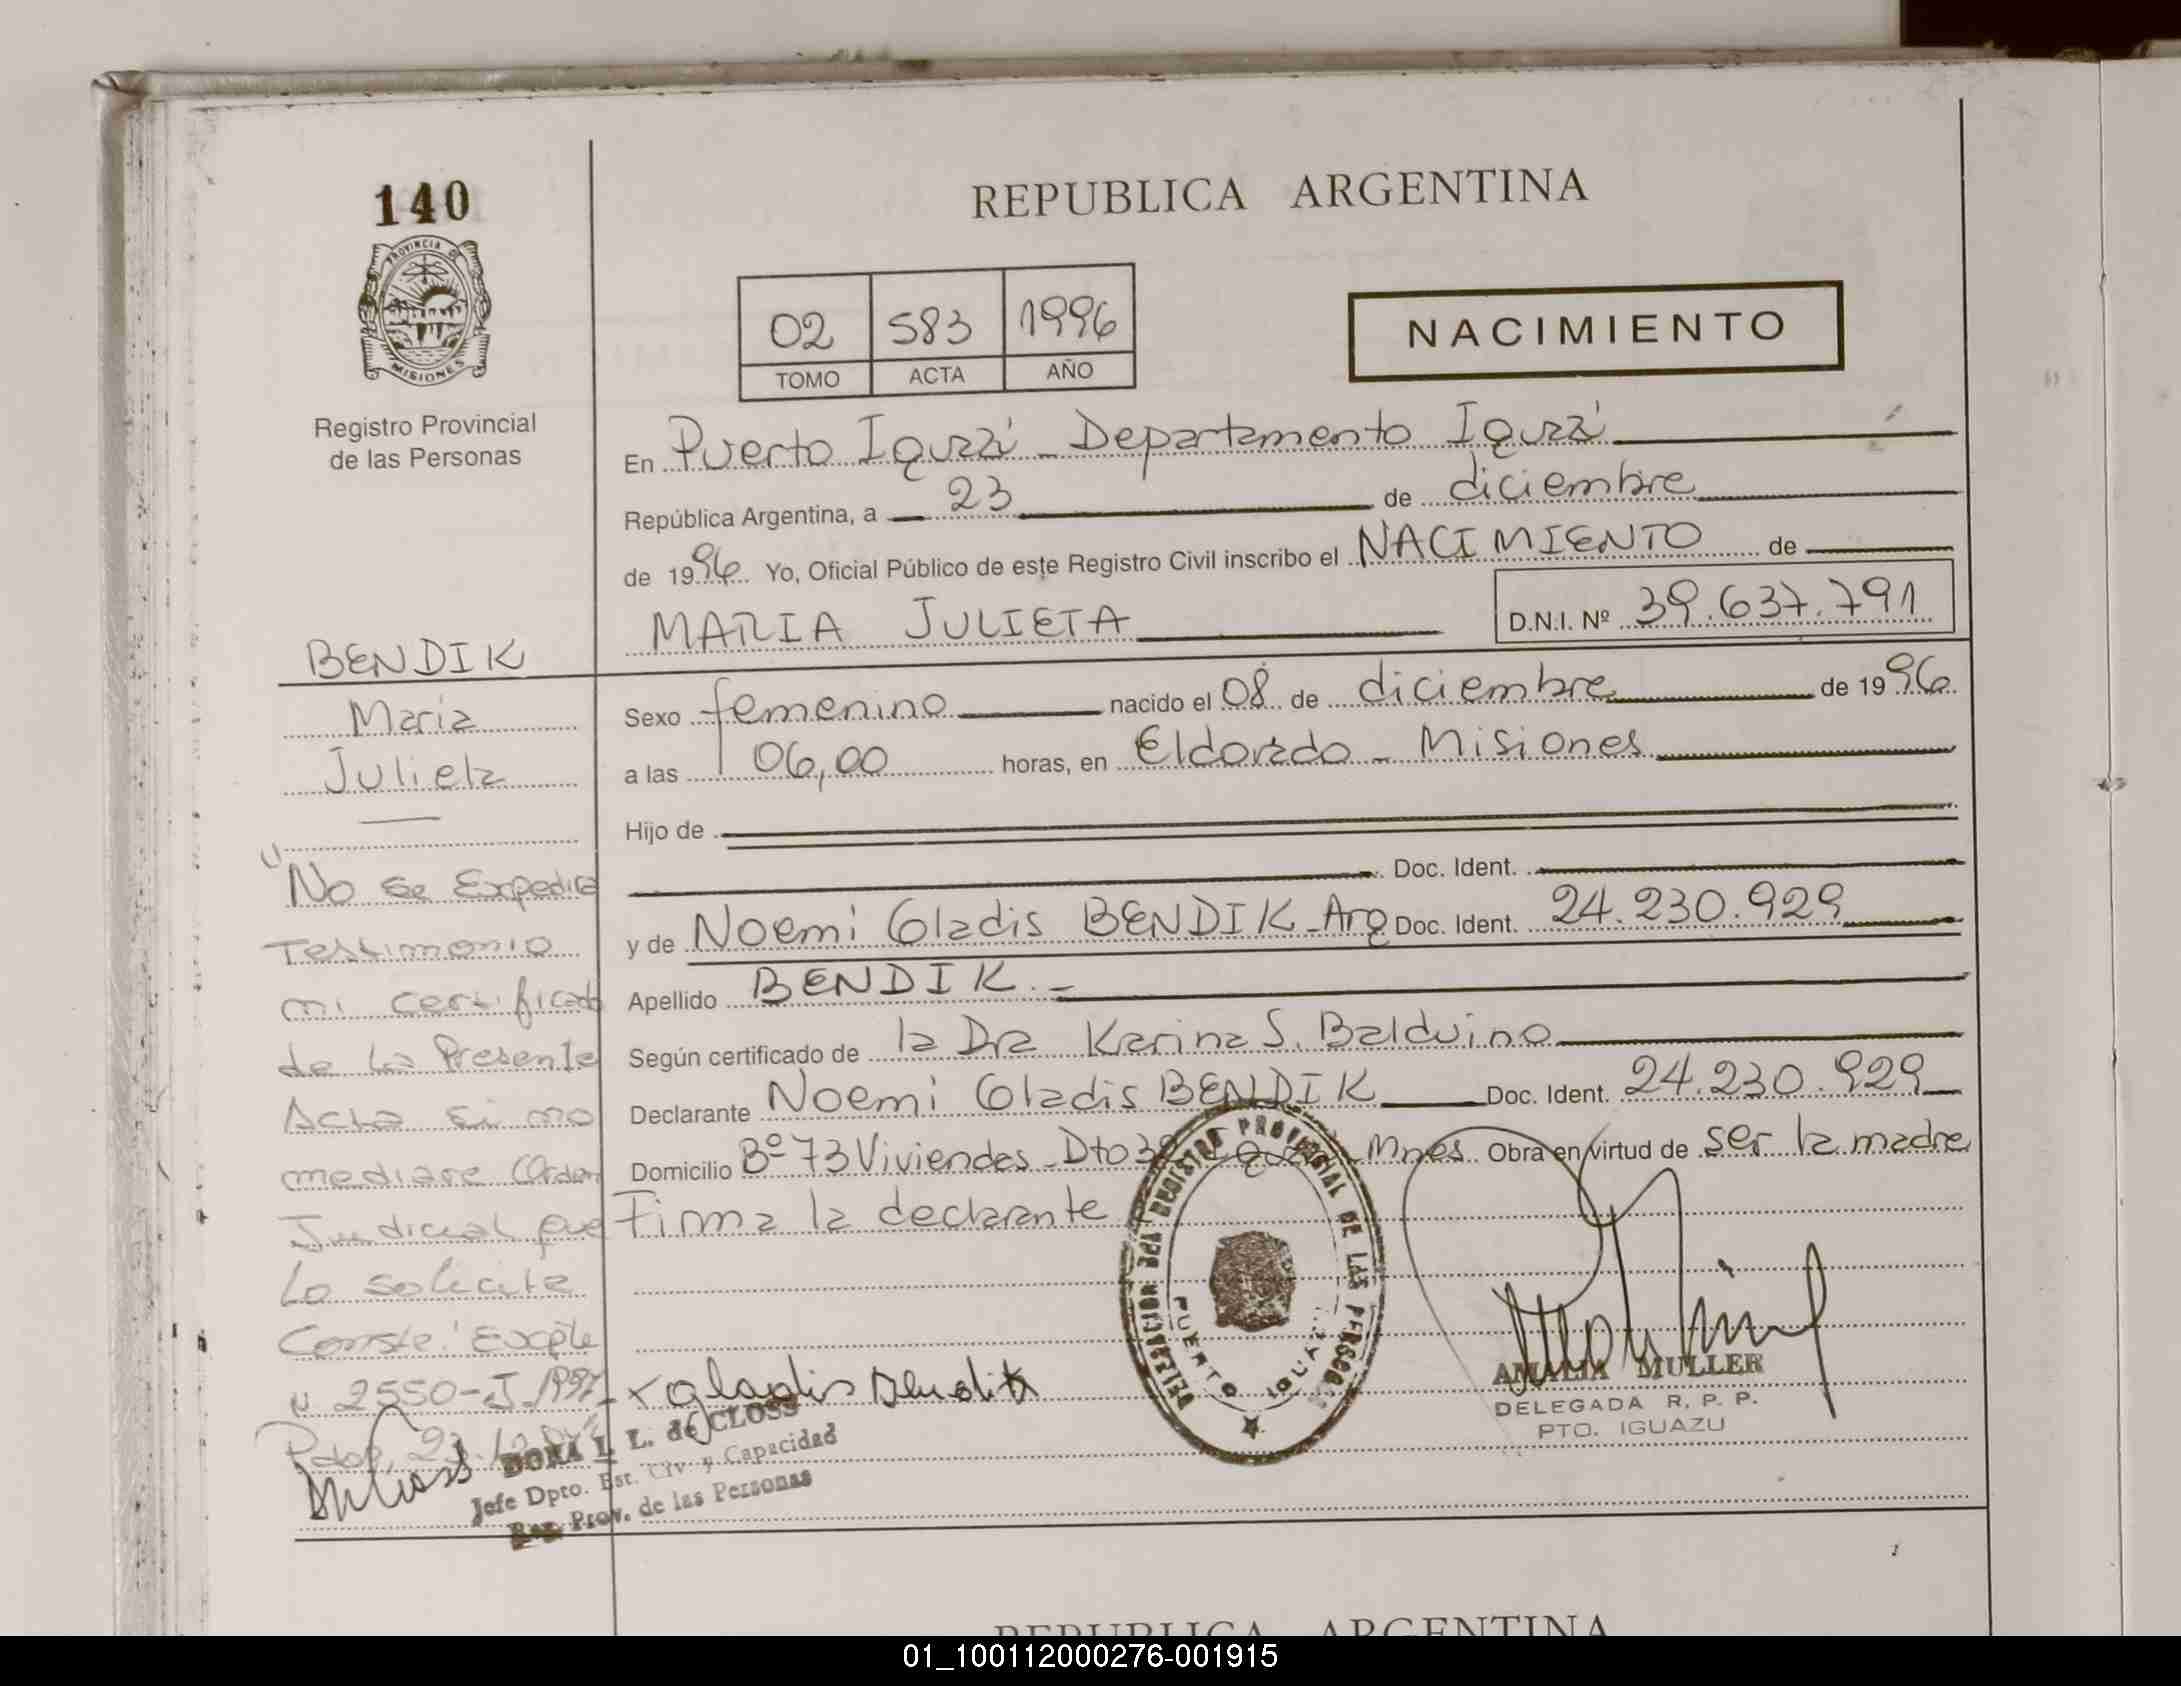 140
PROVINCIA DE
MISIONES
Registro Provincial
de las Personas
REPUBLICA ARGENTINA
02 583 1996
TOMO ACTA AÑO
NACIMIENTO
En Puerto Iguazú - Departamento Iguazú
República Argentina, a 23 de diciembre
de 1996 Yo, Oficial Público de este Registro Civil inscribo el NACIMIENTO de
MARIA JULIETA D.N.I. Nº 39.637.791
Sexo femenino nacido el 08 de diciembre de 1996
a las 06,00 horas, en Eldorado - Misiones
Hijo de
Doc. Ident.
y de Noemi Gladis BENDIK - Arg Doc. Ident. 24.230.929
Apellido BENDIK.-
Según certificado de la Dra Karina S. Balduino
Declarante Noemi Gladis BENDIK Doc. Ident. 24.230.929
Domicilio Bº 73 Viviendas - Dto Mnes Obra en virtud de ser la madre
Firma la declarante
BENDIK
Maria
Julieta
"No se Expedira
Testimonio
ni certificado
de La Presente
Acta si no
mediare Orden
Judicial que
Lo solicite
Conste! Expte
n 2550-J-
Gladis Bendik
L. L. de CLOSS
Jefe Dpto. Est. Civ. y Capacidad
Reg. Prov. de las Personas
REGISTRO PROVINCIAL DE LAS PERSONAS
DELEGACION
PUERTO IGUAZU
AMALIA MULLER
DELEGADA R. P. P.
PTO. IGUAZU
REPUBLICA ARGENTINA
01_100112000276-001915